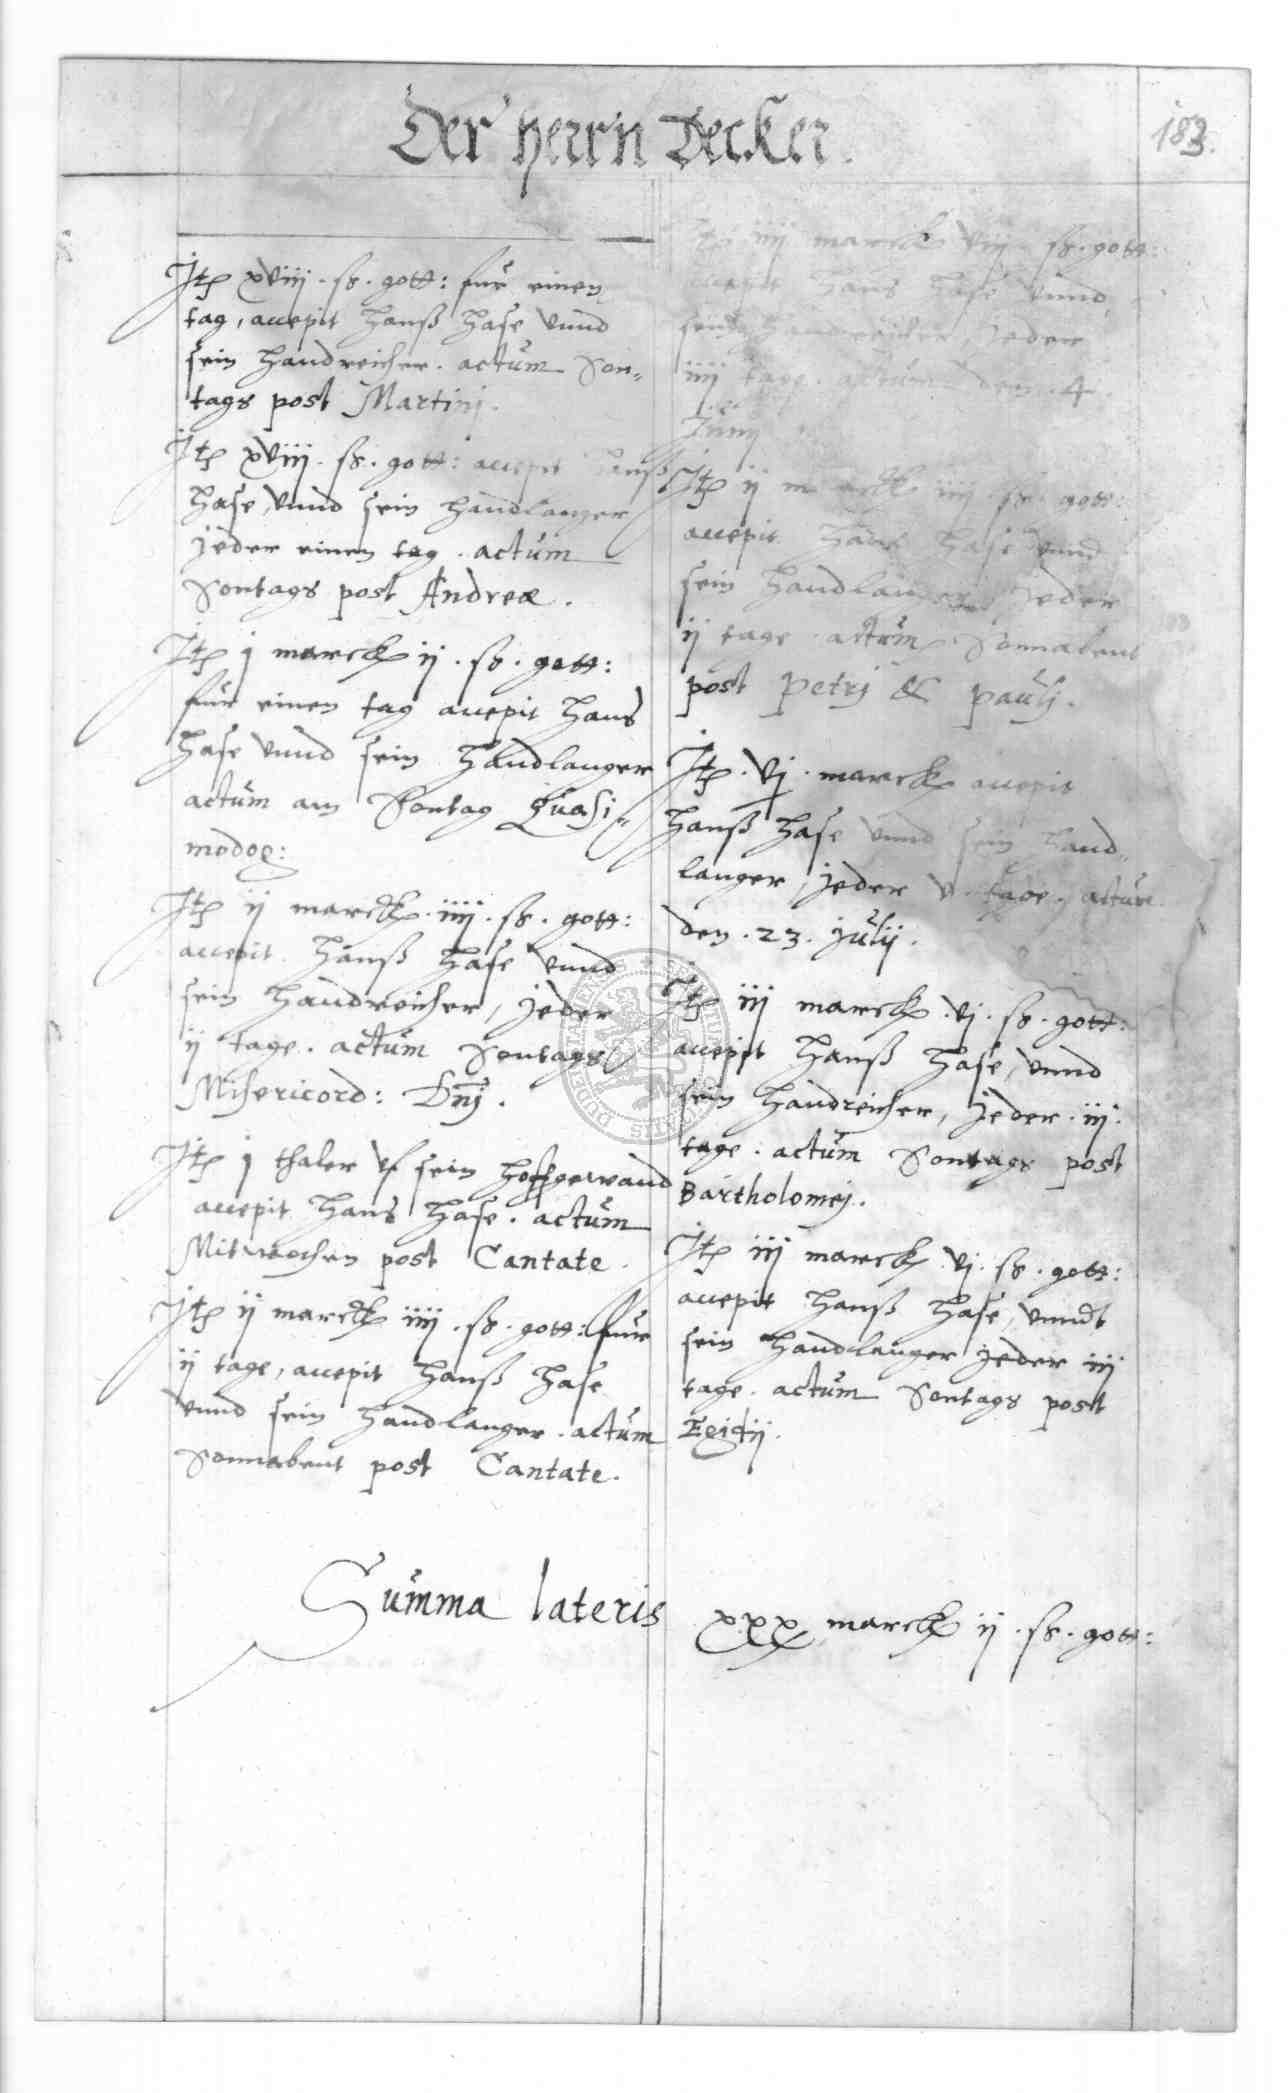 Der herrn Decker.
183.
Jtem xviij. ß. gott: fur einen
tag, accepit Hanß Hase vnnd
sein Handreicher. actum Son-
tags post Martini.
Jtem xviij. ß. gott: accepit Hanß
Hase, vnnd sein Handlanger
jeder einen tag. actum
Sontags post Andreæ.
Jtem j marck ij. ß. gott:
fur einen tag accepit Hans
Hase vnnd sein Handlanger
actum am Sontag Quasi-
modog:
Jtem ij marck. iiij. ß. gott:
accepit Hanß Hase vnnd
sein Handreicher, jeder
ij tage. actum Sontags
Misericord: Dnj.
Jtem j thaler vf sein hoffgewand
accepit Hans Hase. actum
Mitwochen post Cantate.
Jtem ij marck iiij. ß. gott: fur
ij tage, accepit Hanß Hase
vnnd sein Handlanger. actum
Sonnabent post Cantate.
Jtem iiij marck viij ß. gott:
accepit Hans Hase vnnd
sein Handreicher, jeder
iiij tage. actum den. 4.
Junij
Jtem ij marck iiij. ß. gott:
accepit Hans Hase vnnd
sein Handlanger jeder
ij tage. actum Sonnabent
post Petrj & Paulj.
Jtem. vj. marck accepit
Hanß Hase vnnd sein Hand-
langer, jeder v. tage. actum
den. 23. Julij.
Jtem iij marck. vj. ß. gott:
accepit Hanß Hase, vnnd
sein Handreicher, jeder. iij.
tage. actum Sontags post
Bartholomej.
Jtem iij marck. vj. ß. gott:
accepit Hanß Hase, vnndt
sein Handlanger jeder iij
tage. actum Sontags post
Egidij.
Summa lateris xxx marck ij. ß. gott: